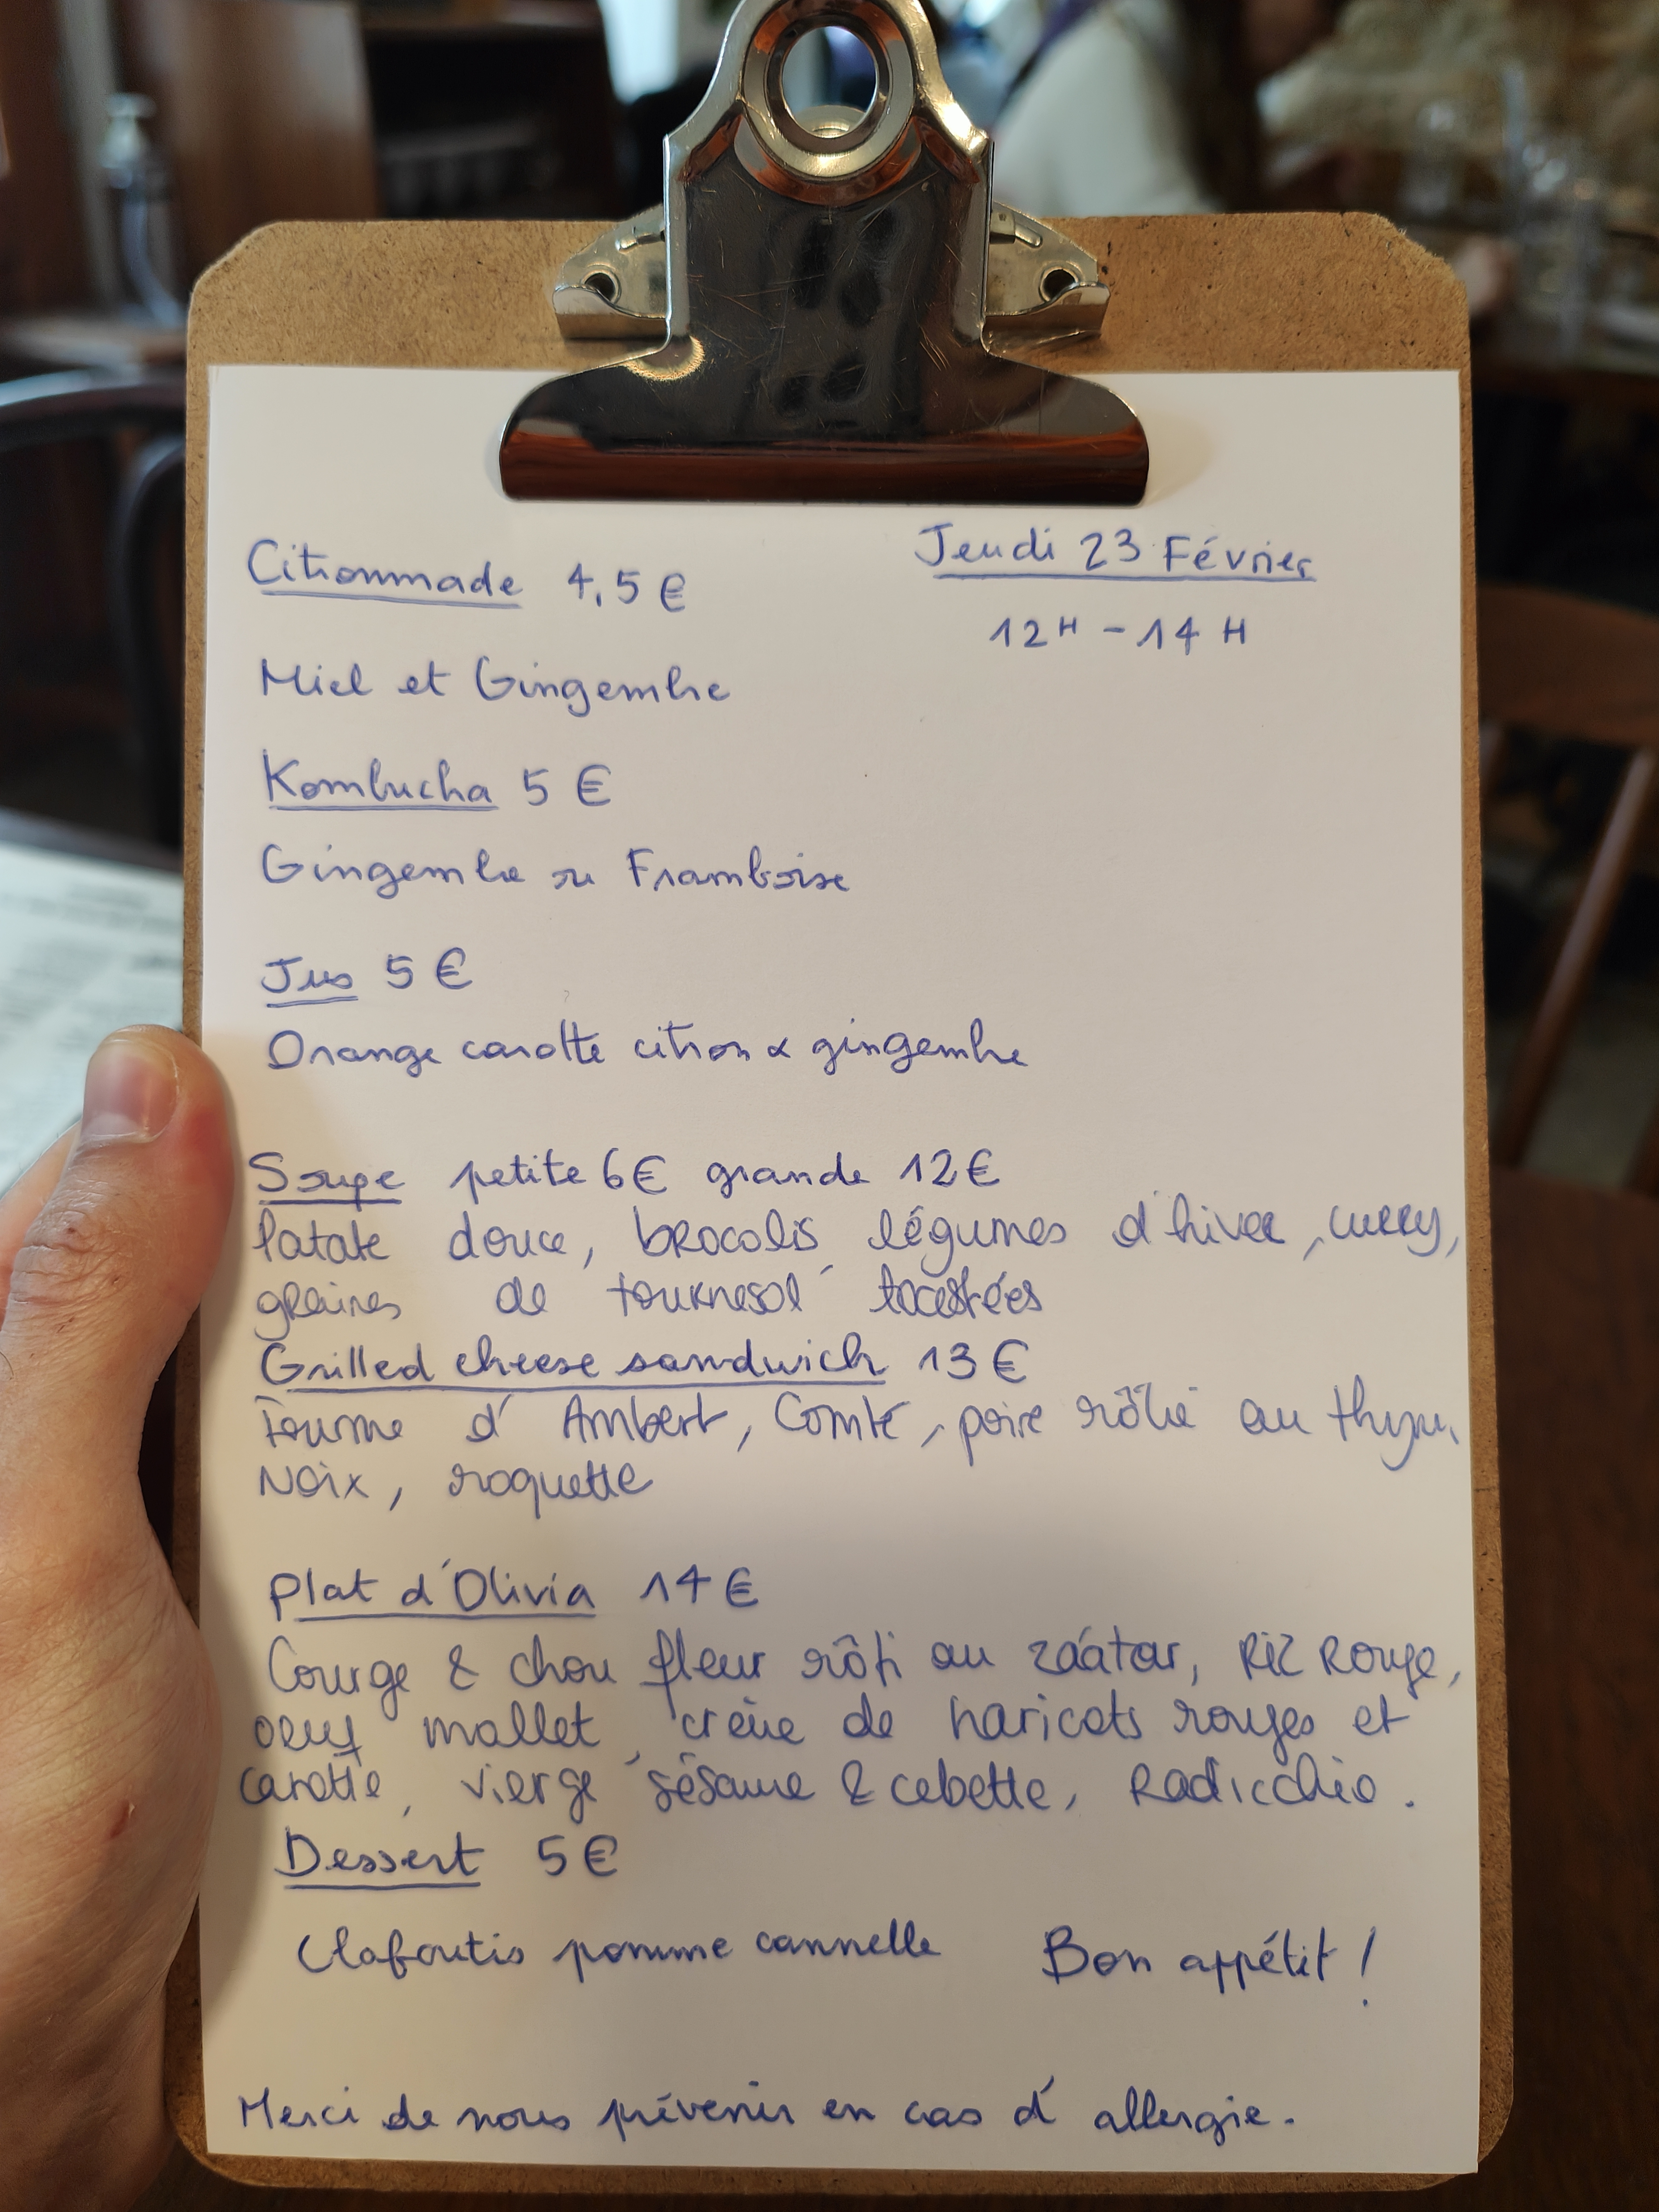 Jeudi 23 Février
12H - 14H
Citronnade 4,5€
Miel et Gingembre
Kombucha 5€
Gingembre ou Framboise
Jus 5€
Orange carotte citron & gingembre
Soupe petite 6€ grande 12€
Patate douce, brocolis, légumes d'hiver, curry,
graines de tournesol toastées
Grilled cheese sandwich 13€
Fourme d'Ambert, Comté, poire rôtie au thym,
Noix, roquette
Plat d'Olivia 14€
Courge & chou fleur rôti au záatar, Riz Rouge,
oeuf mollet, crème de haricots rouges et
carotte, vierge sésame & cebette, Radicchio.
Dessert 5€
Clafoutis pomme cannelle
Bon appétit !
Merci de nous prévenir en cas d'allergie.